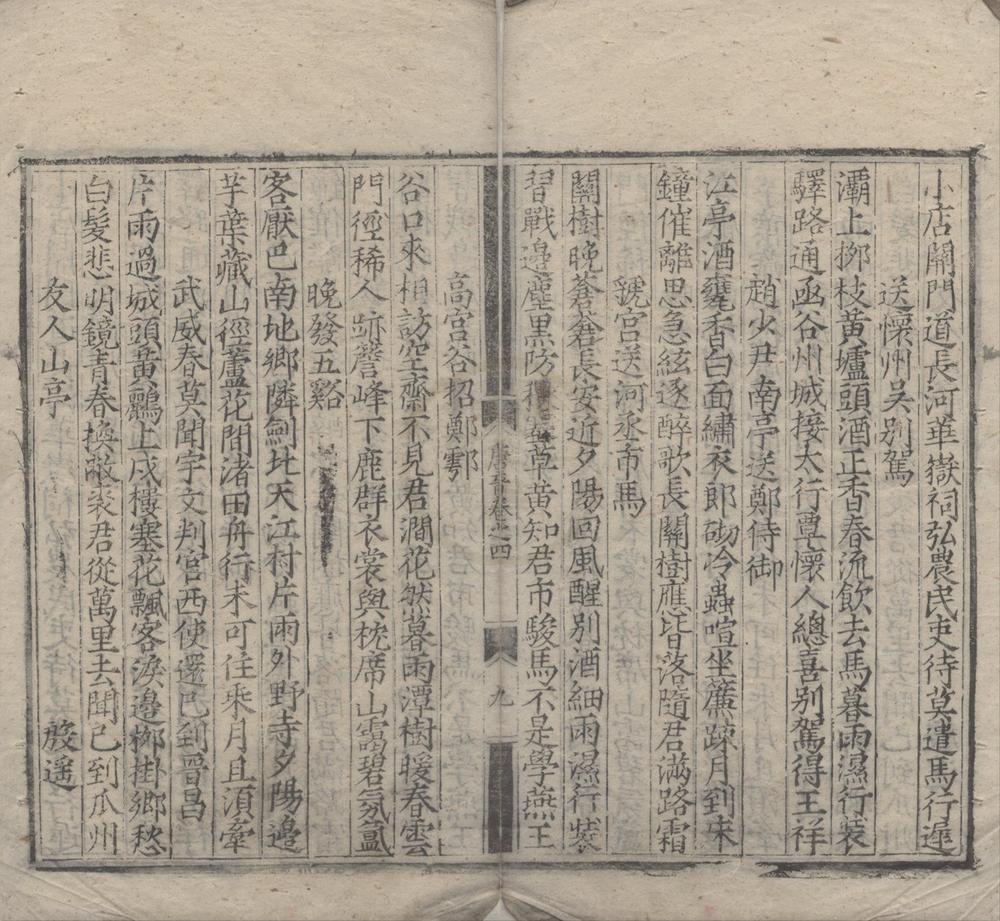 小店關門道長河華嶽祠弘農民吏待莫遣馬行遲
送懷州吳別駕
灞上柳枝黃壚頭酒正香春流飲去馬暮雨濕行裝
驛路通函谷州城接太行覃懷人總喜別駕得王祥
趙少尹南亭送鄭侍御
江亭酒甕香白面繡衣郎砌冷蟲喧坐簾疎月到床
鐘催離思急絃逐醉歌長關樹應皆落隨君滿路霜
虢宮送河丞市馬
關樹晚蒼蒼長安近夕陽回風醒別酒細雨濕行裝
習戰邊塵黑防草黃知君市駿馬不是學燕王
唐音卷之四
九
高宮谷招鄭鄠
谷口來相訪空齋不見君澗花然暮雨潭樹暖春雲
門徑稀人跡簷峰下鹿群衣裳與枕席山靄碧氛氳
晚發五谿
客厭巴南地鄉隣劍北天江村片雨外野寺夕陽邊
芋葉藏山徑蘆花間渚田舟行未可住乘月且須牽
武威春莫聞宇文判官西使還已到晉昌
片雨過城頭黃鸝上戍樓塞花飄客淚邊柳掛鄉愁
白髮悲明鏡青春換敝裘君從萬里去聞已到瓜州
友人山亭 殷遥